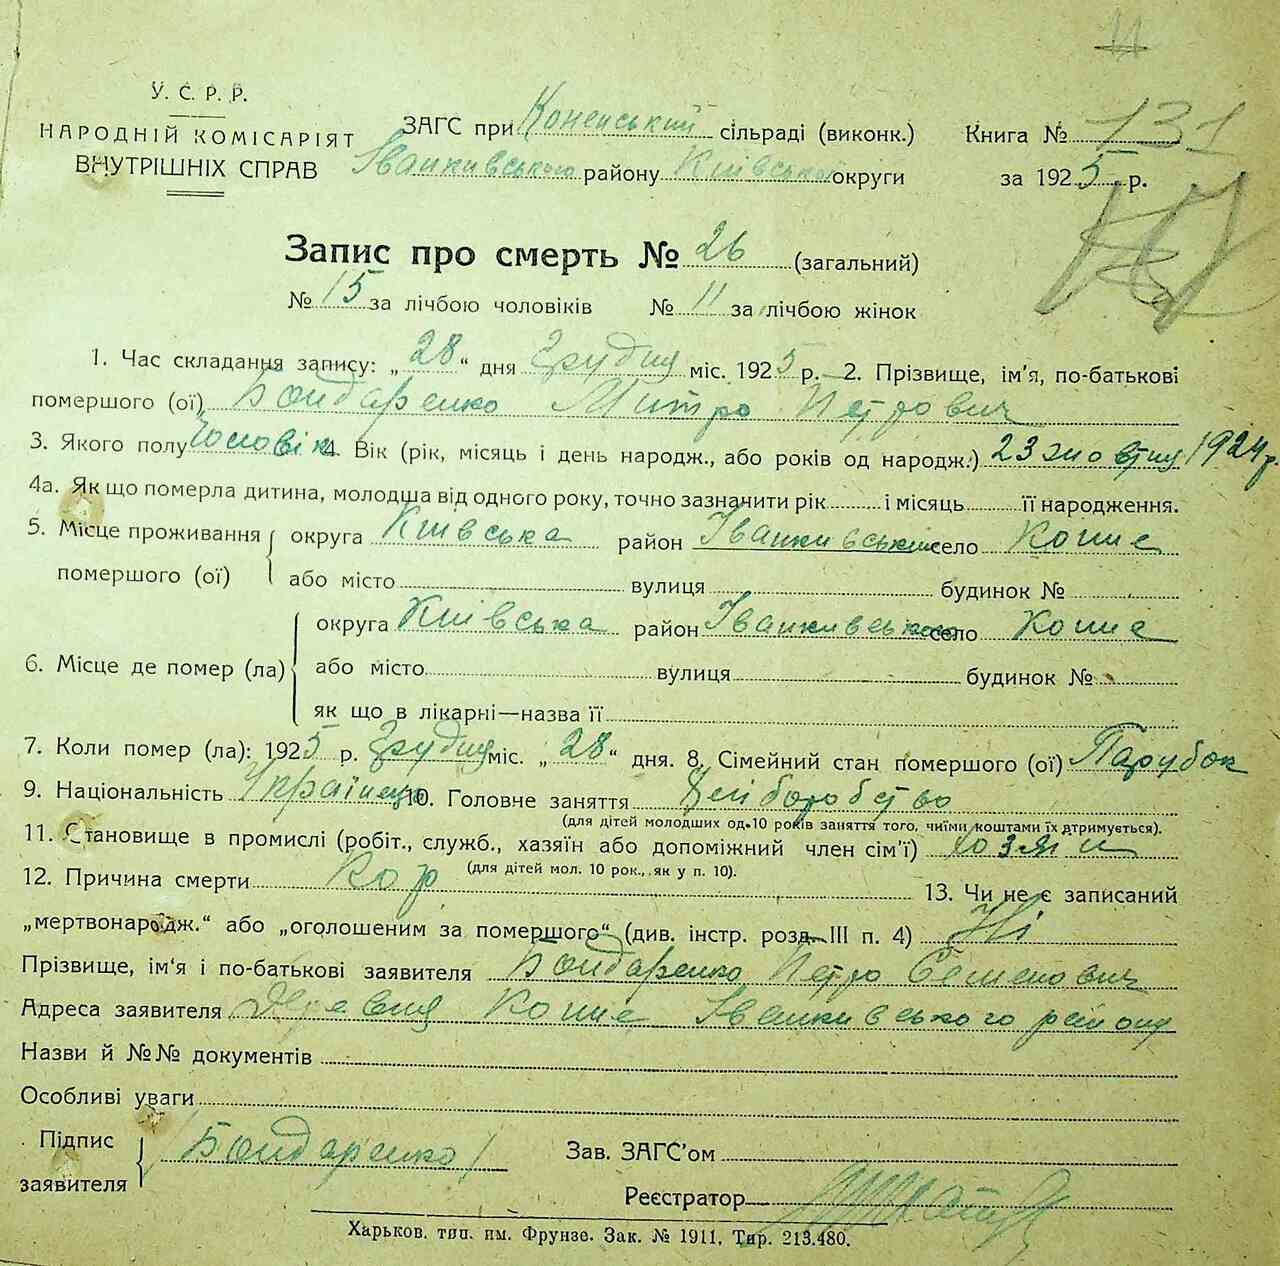 У. С. Р. Р.
НАРОДНІЙ КОМІСАРІЯТ
ВНУТРІШНІХ СПРАВ
ЗАГС при сільраді (виконк.)
Іванківського району Київської округи
Книга № 131
за 1925 р.
Запис про смерть № 26 (загальний)
№ 15 за лічбою чоловіків № 11 за лічбою жінок
1. Час складання запису: „28“ дня Грудня міс. 1925 р. 2. Прізвище, ім'я, по-батькові
помершого (ої) Бондаренко Митро Петрович
3. Якого полу Чоловік 4. Вік (рік, місяць і день народж., або років од народж.) 23 жовтня 1924 р.
4а. Як що померла дитина, молодша від одного року, точно зазначити рік і місяць її народження.
5. Місце проживання помершого (ої) округа Київська район Іванківський село
або місто вулиця будинок №
6. Місце де помер (ла) округа Київська район Іванківського село
або місто вулиця будинок №
як що в лікарні—назва її
7. Коли помер (ла): 1925 р. Грудня міс. „28“ дня. 8. Сімейний стан помершого (ої) Парубок
9. Національність Українець 10. Головне заняття
(для дітей молодших од 10 років заняття того, чиїми коштами їх втримується).
11. Становище в промислі (робіт., служб., хазяїн або допоміжний член сім'ї) Хозяїн
(для дітей мол. 10 рок., як у п. 10).
12. Причина смерти Кор 13. Чи не є записаний
„мертвонародж.“ або „оголошеним за помершого“ (див. інстр. розд. III п. 4) Ні
Прізвище, ім'я і по-батькові заявителя Бондаренко Петро Семенович
Адреса заявителя Іванківського району
Назви й №№ документів
Особливі уваги
Підпис заявителя Бондаренко
Зав. ЗАГС'ом
Реєстратор
Харьков. тип. им. Фрунзе. Зак. № 1911. Тир. 213.480.